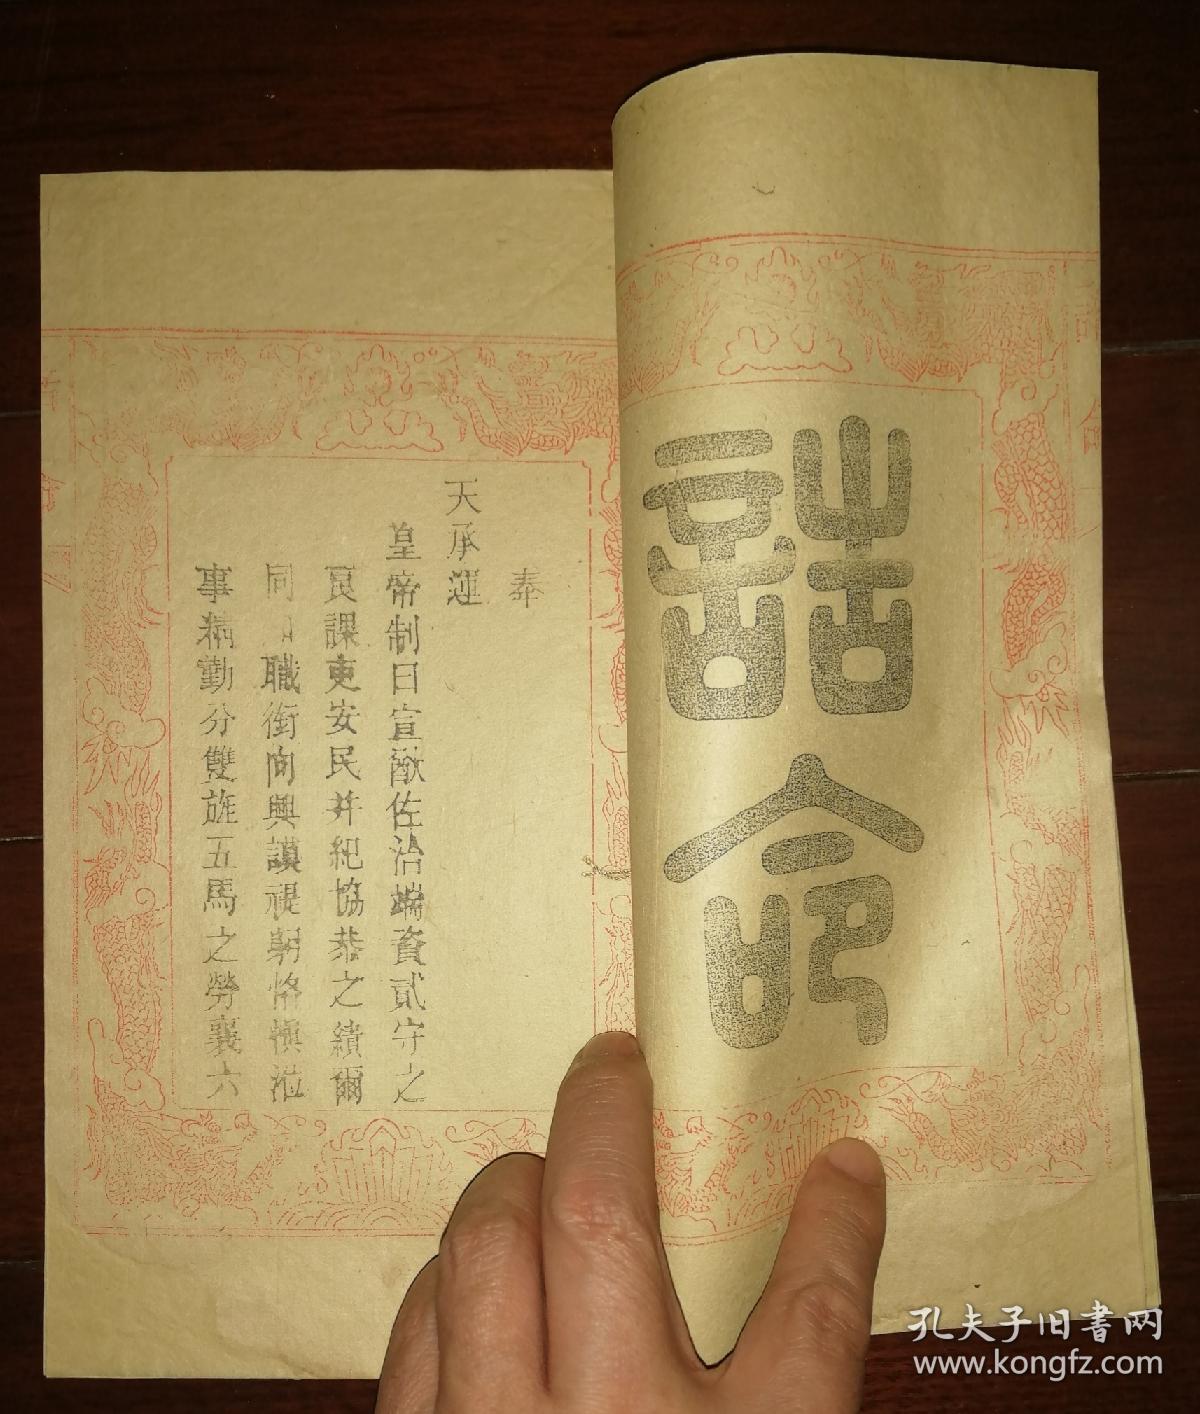 誥命
奉
天承運
皇帝制曰宣猷佐治端資貳守之
良課吏安民并紀協恭之績爾
同知職銜向興謨褆躬恪慎涖
事精勤分雙旌五馬之勞襄六
孔夫子旧書网
www.kongfz.com